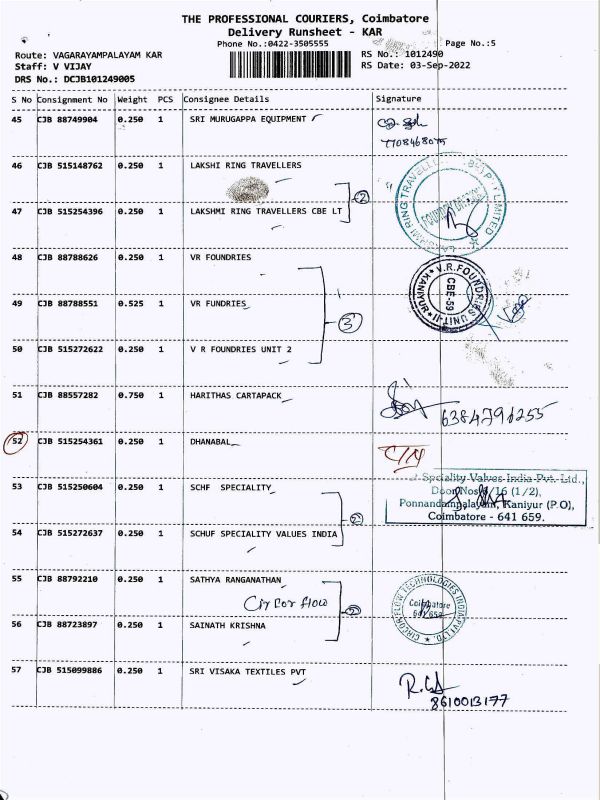 THE PROFESSIONAL COURIERS, Coimbatore
Delivery Runsheet - KAR
Phone No.:0422-3505555 Page No.:5
Route: VAGARAYAMPALAYAM KAR RS No.: 1012490
Staff: V VIJAY RS Date: 03-Sep-2022
DRS No.: DCJB101249005
S No Consignment No Weight PCS Consignee Details Signature
45 CJB 88749904 0.250 1 SRI MURUGAPPA EQUIPMENT
46 CJB 515148762 0.250 1 LAKSHI RING TRAVELLERS
2
47 CJB 515254396 0.250 1 LAKSHMI RING TRAVELLERS CBE LT
LAKSHMI RING TRAVELLERS LIMITED
FOUNDRY DIVISION
48 CJB 88788626 0.250 1 VR FOUNDRIES
49 CJB 88788551 0.525 1 VR FUNDRIES
3
V.R.FOUNDRIES UNIT-II KANIYUR
CBE-59
50 CJB 515272622 0.250 1 V R FOUNDRIES UNIT 2
51 CJB 88557282 0.750 1 HARITHAS CARTAPACK
52 CJB 515254361 0.250 1 DHANABAL
53 CJB 515250604 0.250 1 SCHF SPECIALITY
2
Speciality Valves India Pvt. Ltd.,
(1/2),
Ponnandampalayam, Kaniyur (P.O),
Coimbatore - 641 659.
54 CJB 515272637 0.250 1 SCHUF SPECIALITY VALUES INDIA
55 CJB 88792210 0.250 1 SATHYA RANGANATHAN
Circor flow 2
CIRCOR FLOW TECHNOLOGIES INDIA PVT LTD.
Coimbatore
56 CJB 88723897 0.250 1 SAINATH KRISHNA
57 CJB 515099886 0.250 1 SRI VISAKA TEXTILES PVT
8610013177